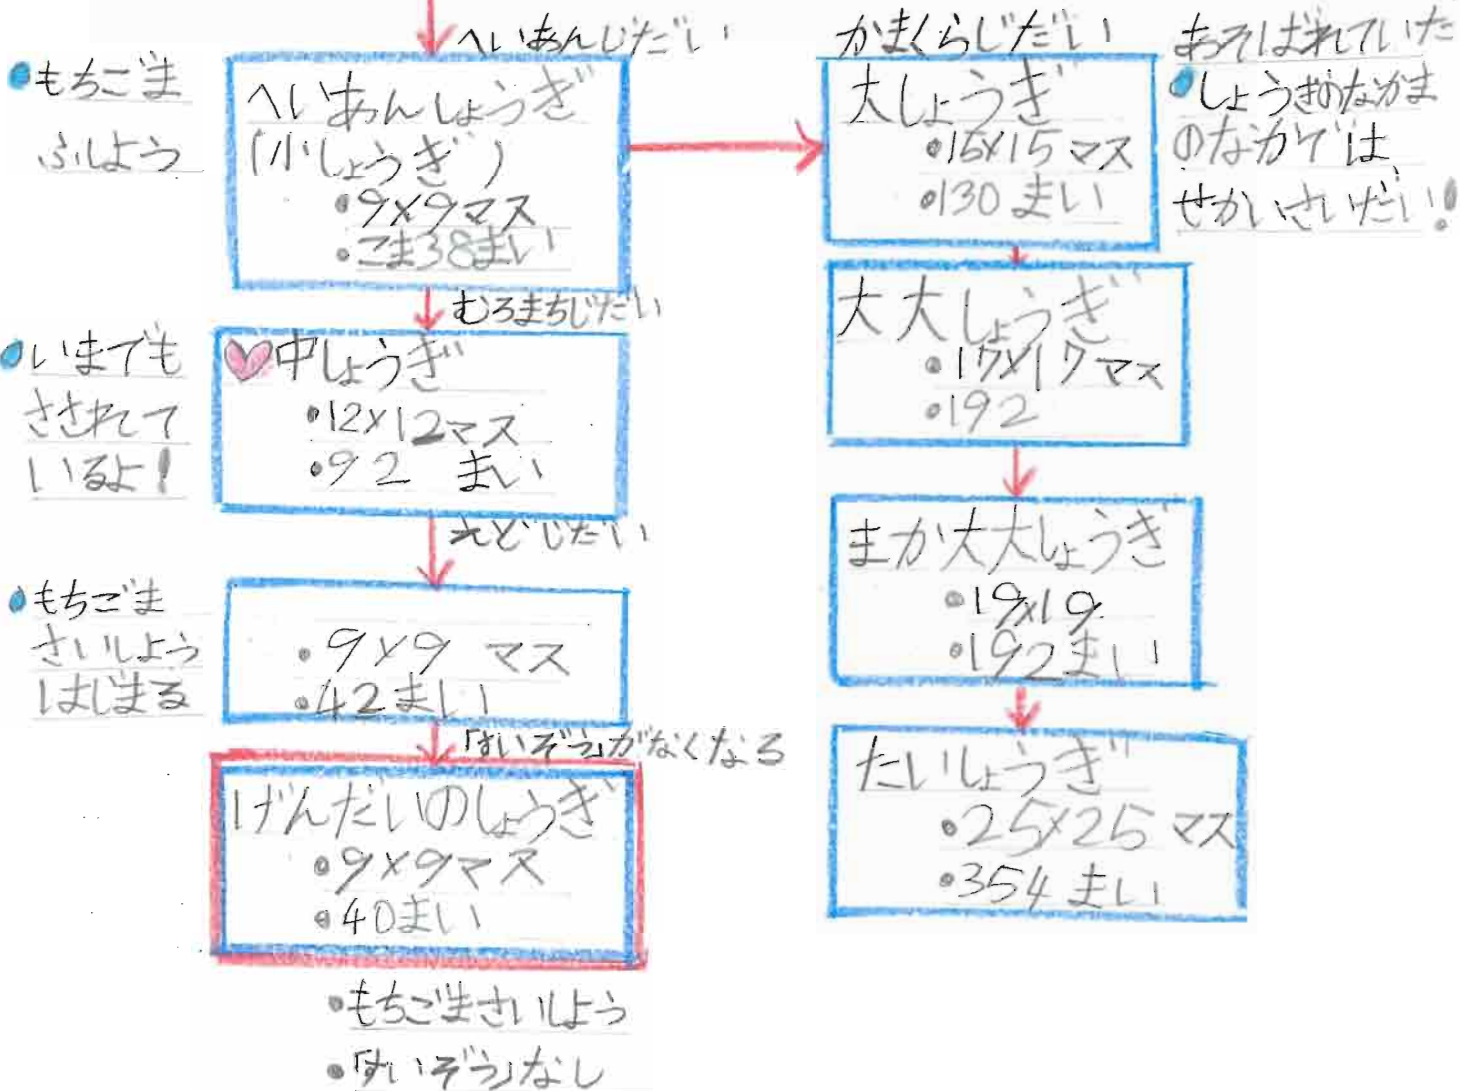 へいあんじだい
●もちごま
ふしよう
へいあんしょうぎ
(小しょうぎ)
・9×9マス
・こま38まい
むろまちじだい
●いまでも
さされて
いるよ!
♥中しょうぎ
・12×12マス
・92 まい
えどじだい
●もちごま
さいしよう
はじまる
・9×9 マス
・42まい
「すいぞう」がなくなる
げんだいのしょうぎ
・9×9マス
・40まい
・もちごまさいしよう
・「すいぞう」なし
かまくらじだい
大しょうぎ
・15×15 マス
・130 まい
あそばれていた
●しょうぎのなかま
のなかでは
せかいさいだい!
大大しょうぎ
・17×17マス
・192
まか大大しょうぎ
・19×19
・192まい
たいしょうぎ
・25×25 マス
・354 まい